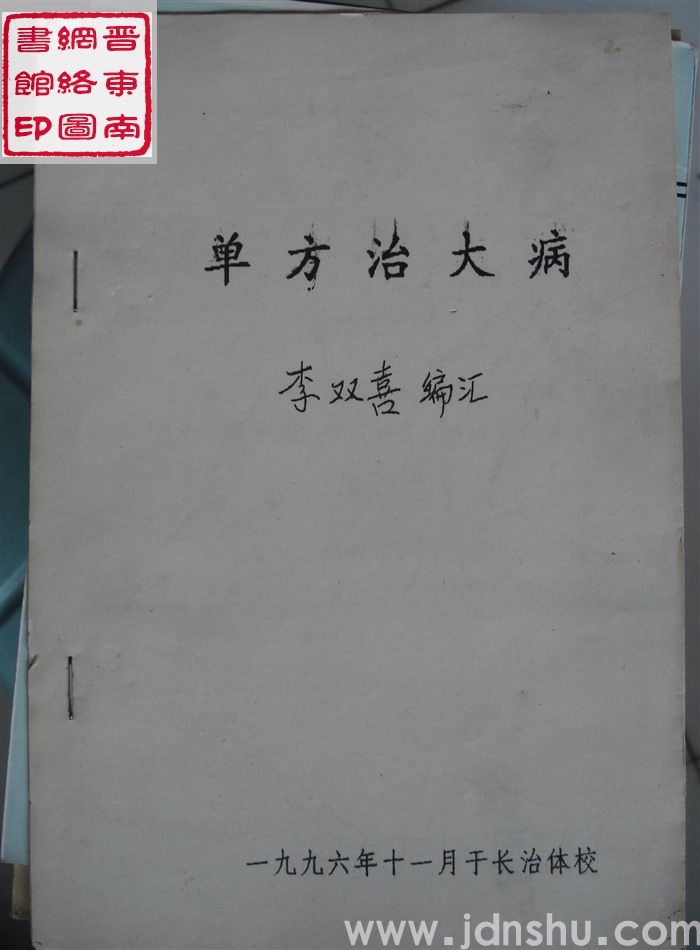 晋東南
網絡圖
書館印
2
单方治大病
李双喜编汇
一九九六年十一月于长治体校
www.jdnshu.com